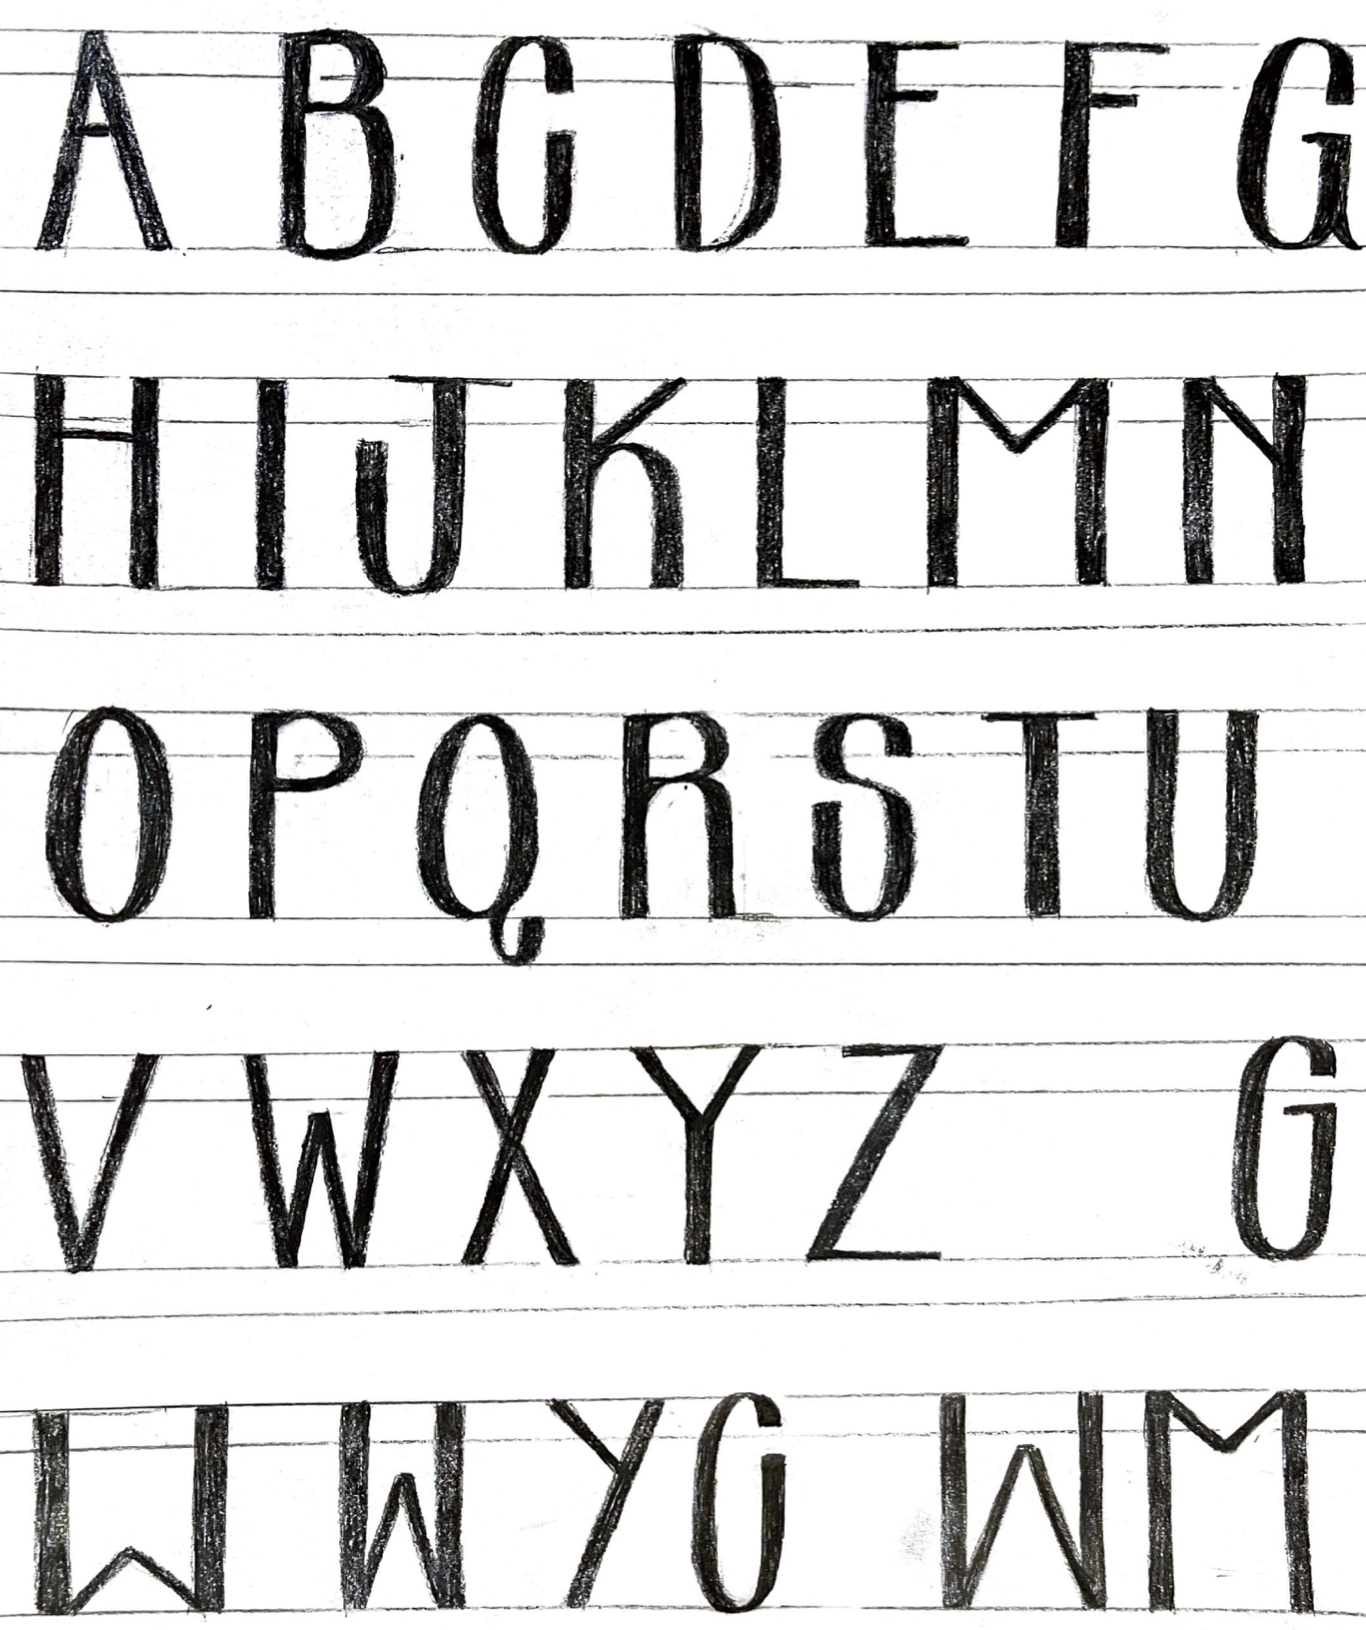 A B C D E F G
H I J K L M N
O P Q R S T U
V W X Y Z G
W W Y G W M